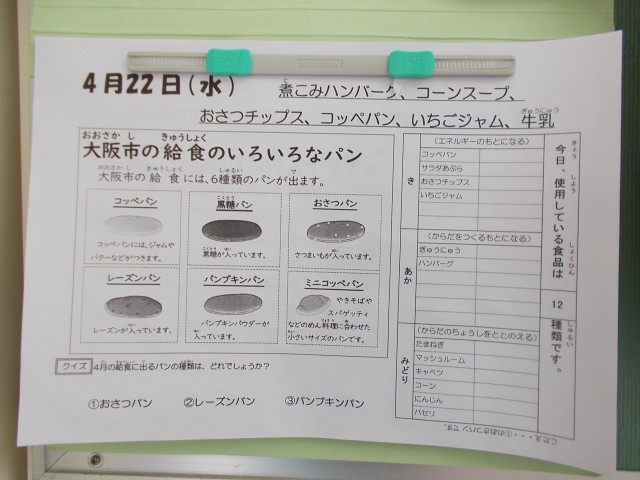 4月22日(水)
煮こみハンバーグ、コーンスープ、
おさつチップス、コッペパン、いちごジャム、牛乳
大阪市の給食のいろいろなパン
大阪市の給食には、6種類のパンが出ます。
コッペパン
コッペパンには、ジャムや
バターなどがつきます。
黒糖パン
黒糖が入っています。
おさつパン
さつまいもが入っています。
レーズンパン
レーズンが入っています。
パンプキンパン
パンプキンパウダーが
入っています。
ミニコッペパン
やきそばや
スパゲッティ
などのめん料理に合わせた
小さいサイズのパンです。
クイズ
4月の給食に出るパンの種類は、どれでしょうか?
①おさつパン ②レーズンパン ③パンプキンパン
今日、使用している食品は
12
種類です。
き
(エネルギーのもとになる)
コッペパン
サラダあぶら
おさつチップス
いちごジャム
あか
(からだをつくるもとになる)
ぎゅうにゅう
ハンバーグ
みどり
(からだのちょうしをととのえる)
たまねぎ
マッシュルーム
キャベツ
コーン
にんじん
パセリ
こたえ・・・①のおさつパンです。